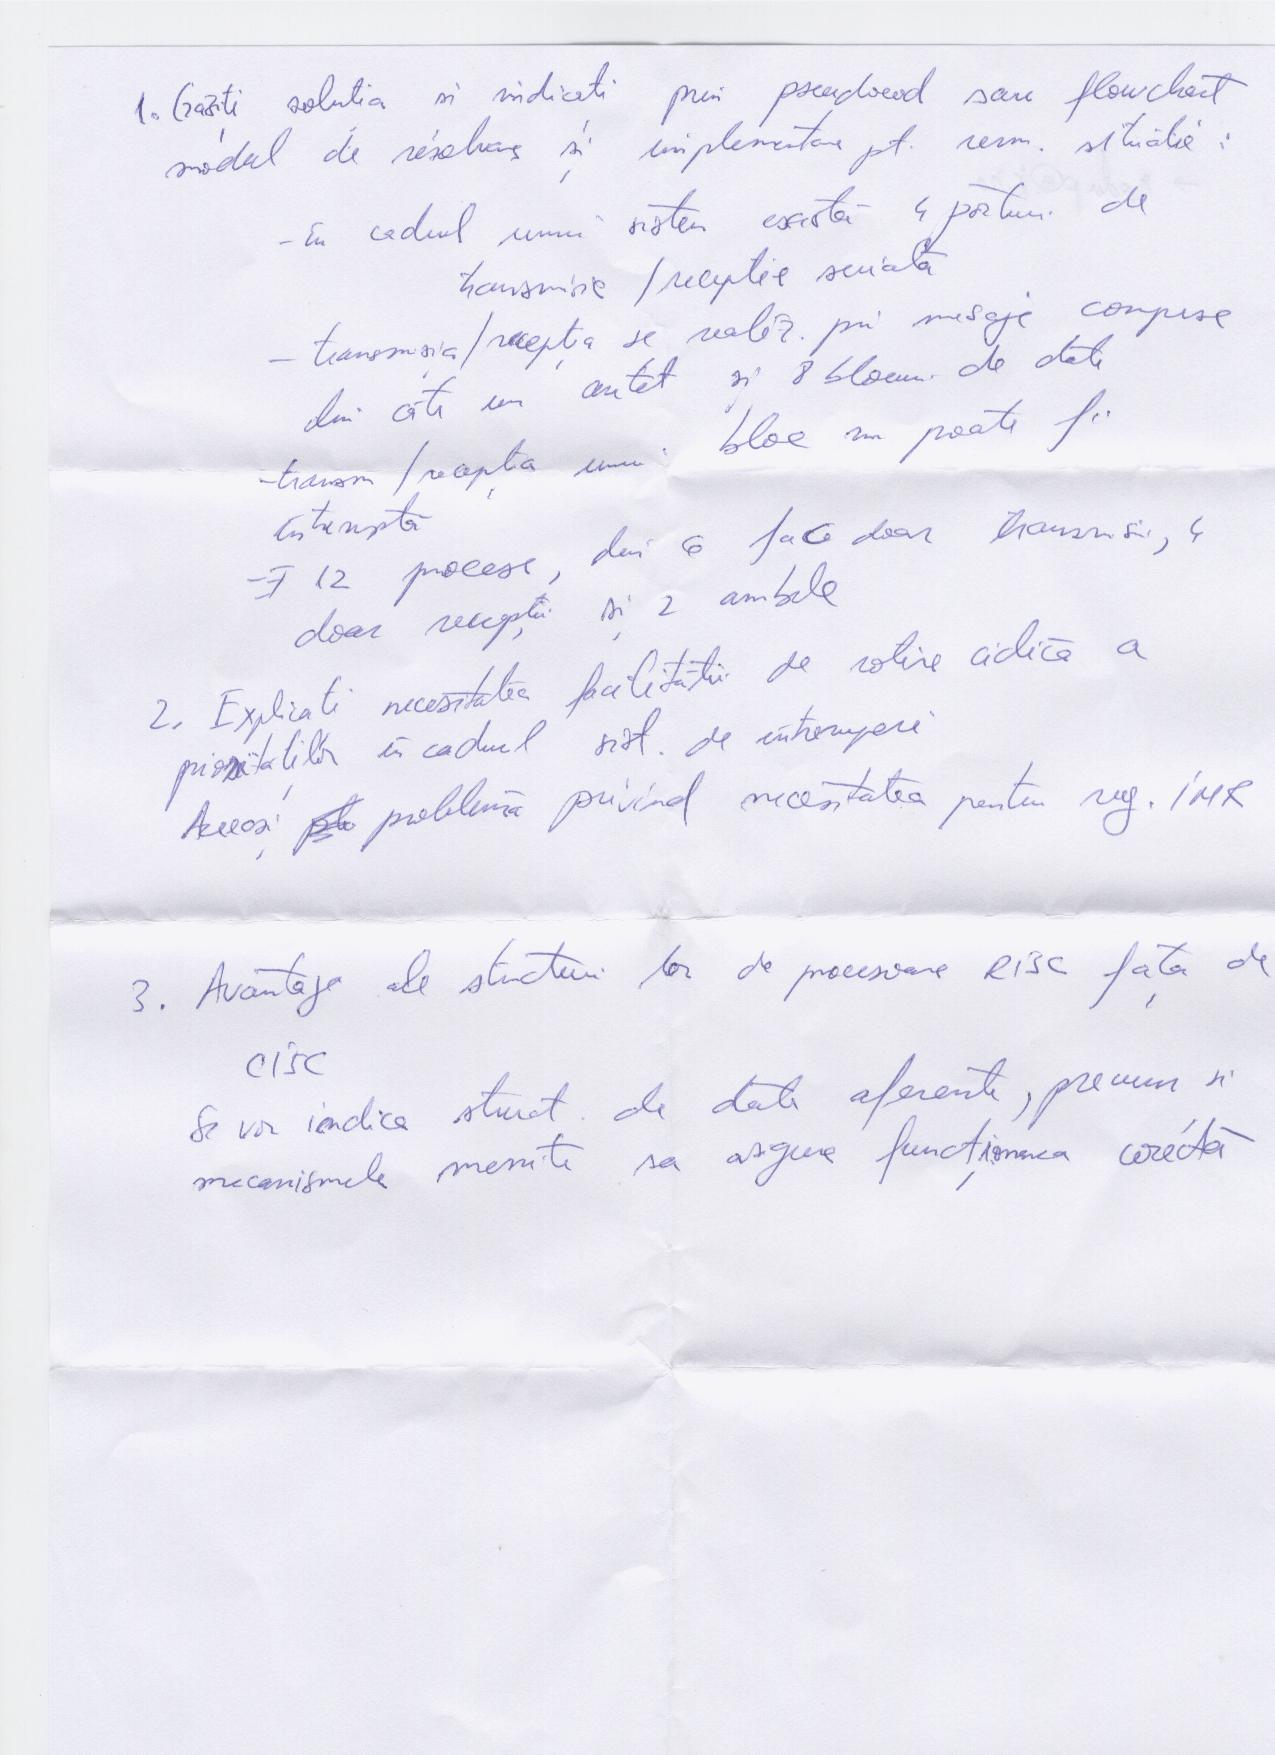 1. Găsiți solutia si indicati prin pseudocod sau flowchart
modul de rezolvare și implementare pt. urm. situatie :
- în cadrul unui sistem există 4 porturi de
transmisie / receptie serială
- transmisia/recepția se realiz. prin mesaje compuse
din câte un antet și 8 blocuri de date
- transm / recepția unui bloc nu poate fi
întreruptă
- ∃ 12 procese, din 6 fac doar transmisii, 4
doar recepții și 2 ambele
2. Explicati necesitatea facilității de rotire ciclică a
priorităților în cadrul sist. de intreruperi
Aceeași problemă privind necesitatea pentru reg. IMR
3. Avantaje ale structurilor de procesoare RISC față de
CISC
Se vor indica struct. de date aferente, precum si
mecanismele menite sa asigure funcționarea corectă